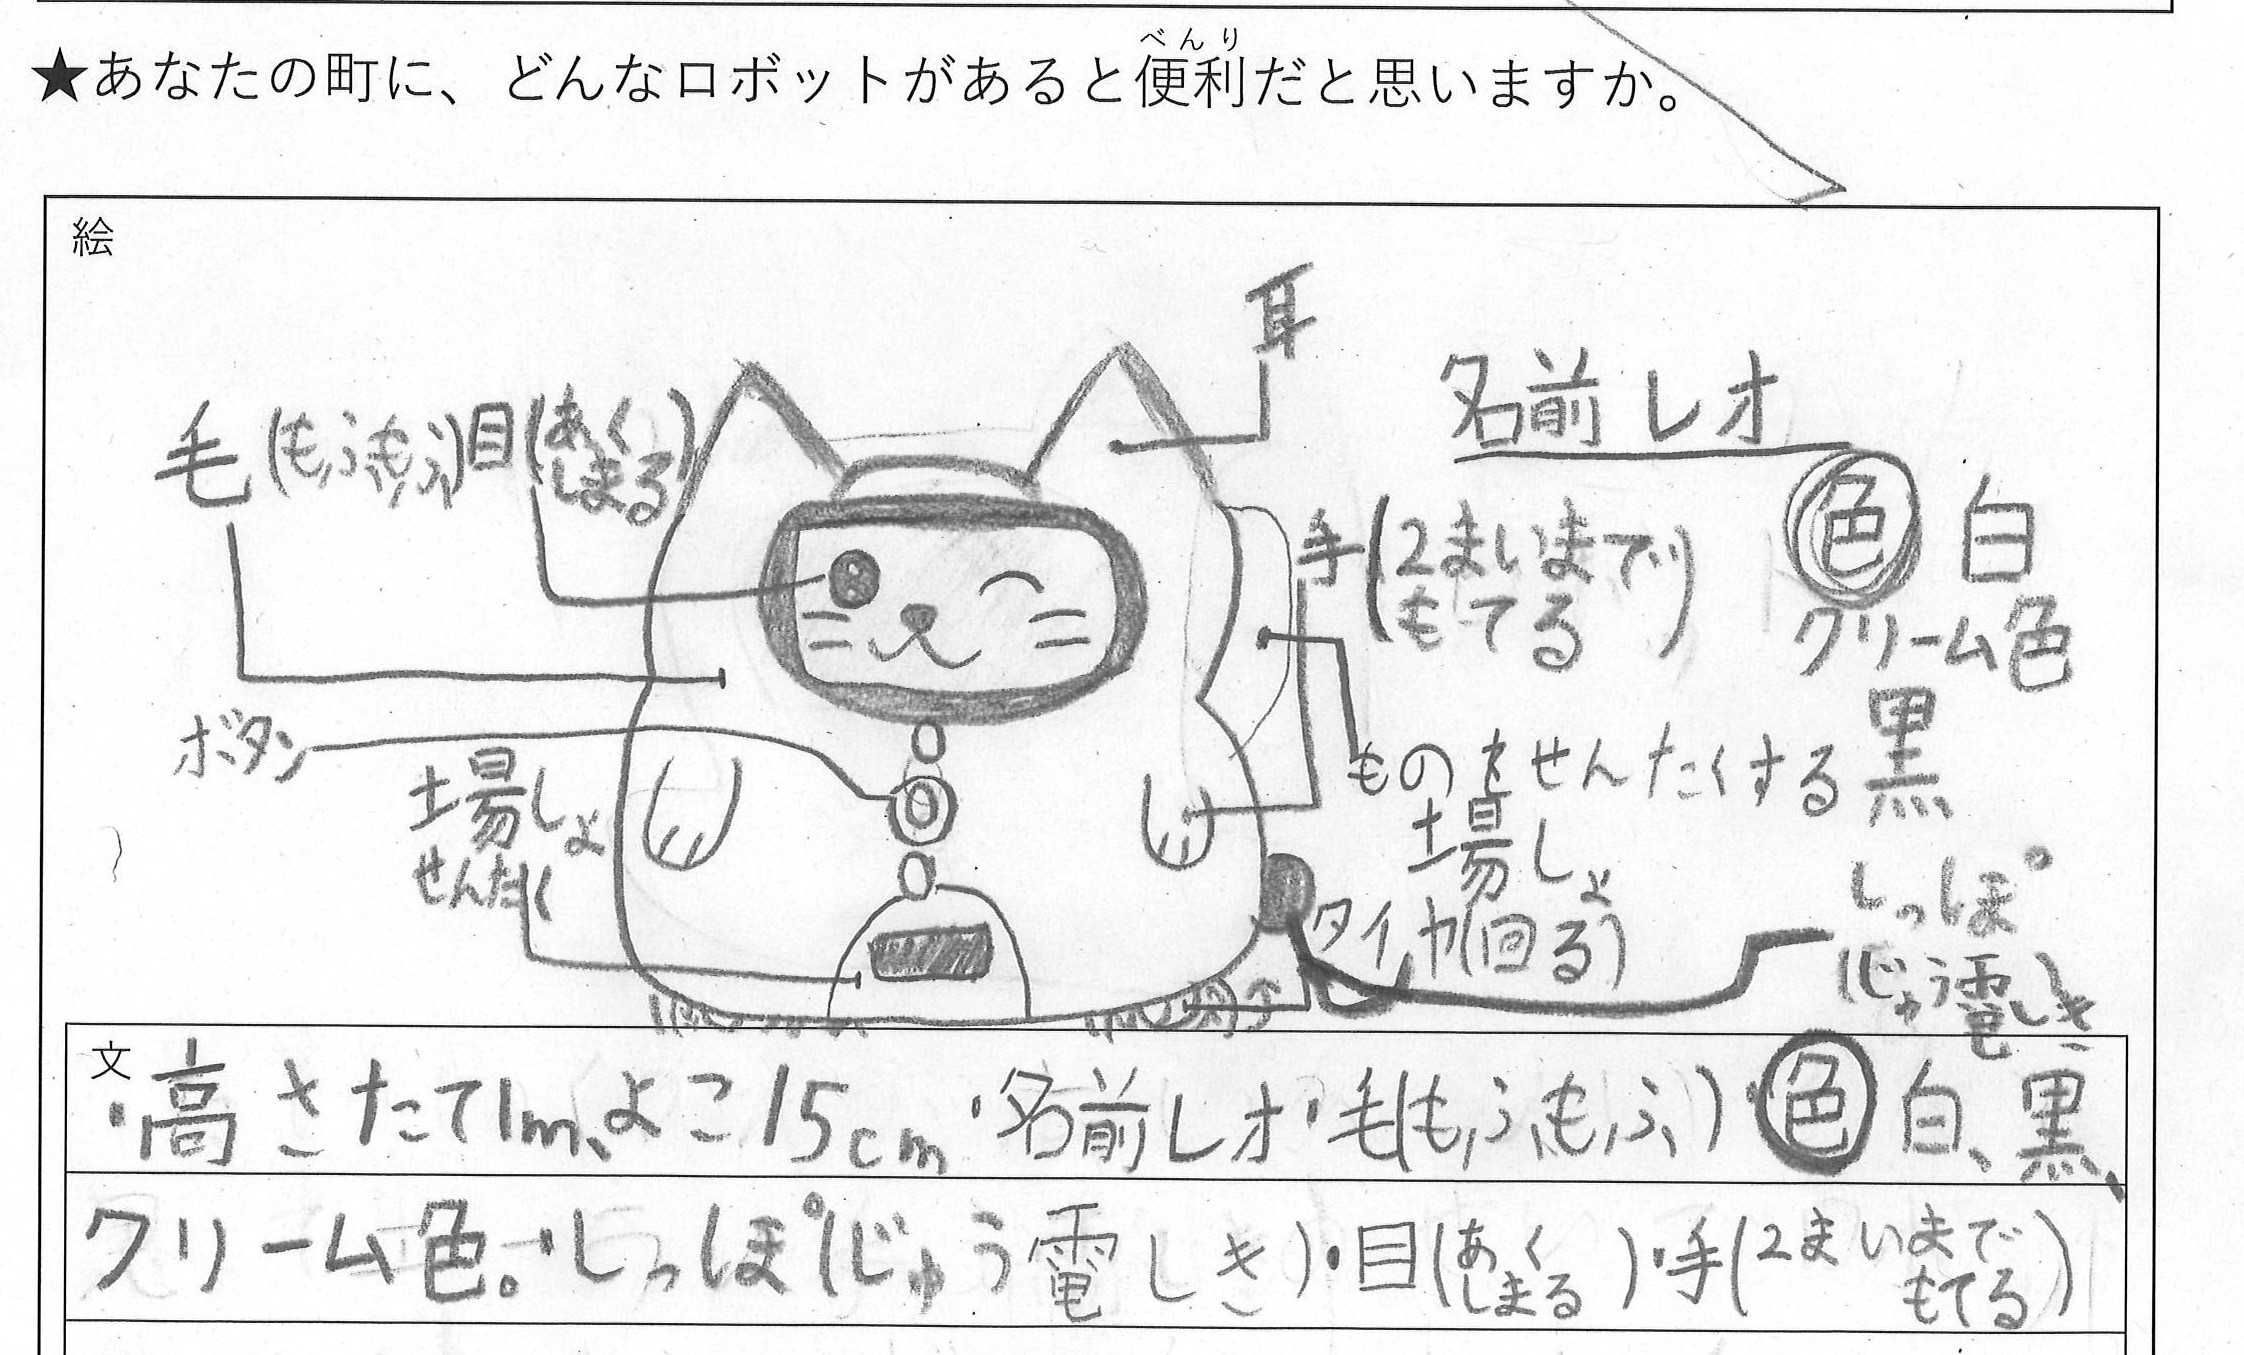 べんり
★あなたの町に、どんなロボットがあると便利だと思いますか。
絵
耳
名前 レオ
毛(もふもふ)
目(あく
しまる)
色 白
クリーム色
黒
手(2まいまで
もてる)
ボタン
ものをせんたくする
場しょ
場しょ
せんたく
タイヤ(回る)
しっぽ
(じゅう電しき)
文
・高さたて1m、よこ15cm・名前レオ・毛(もふもふ)・色 白、黒、
クリーム色。・しっぽ(じゅう電しき)・目(あく
しまる)・手(2まいまで
もてる)